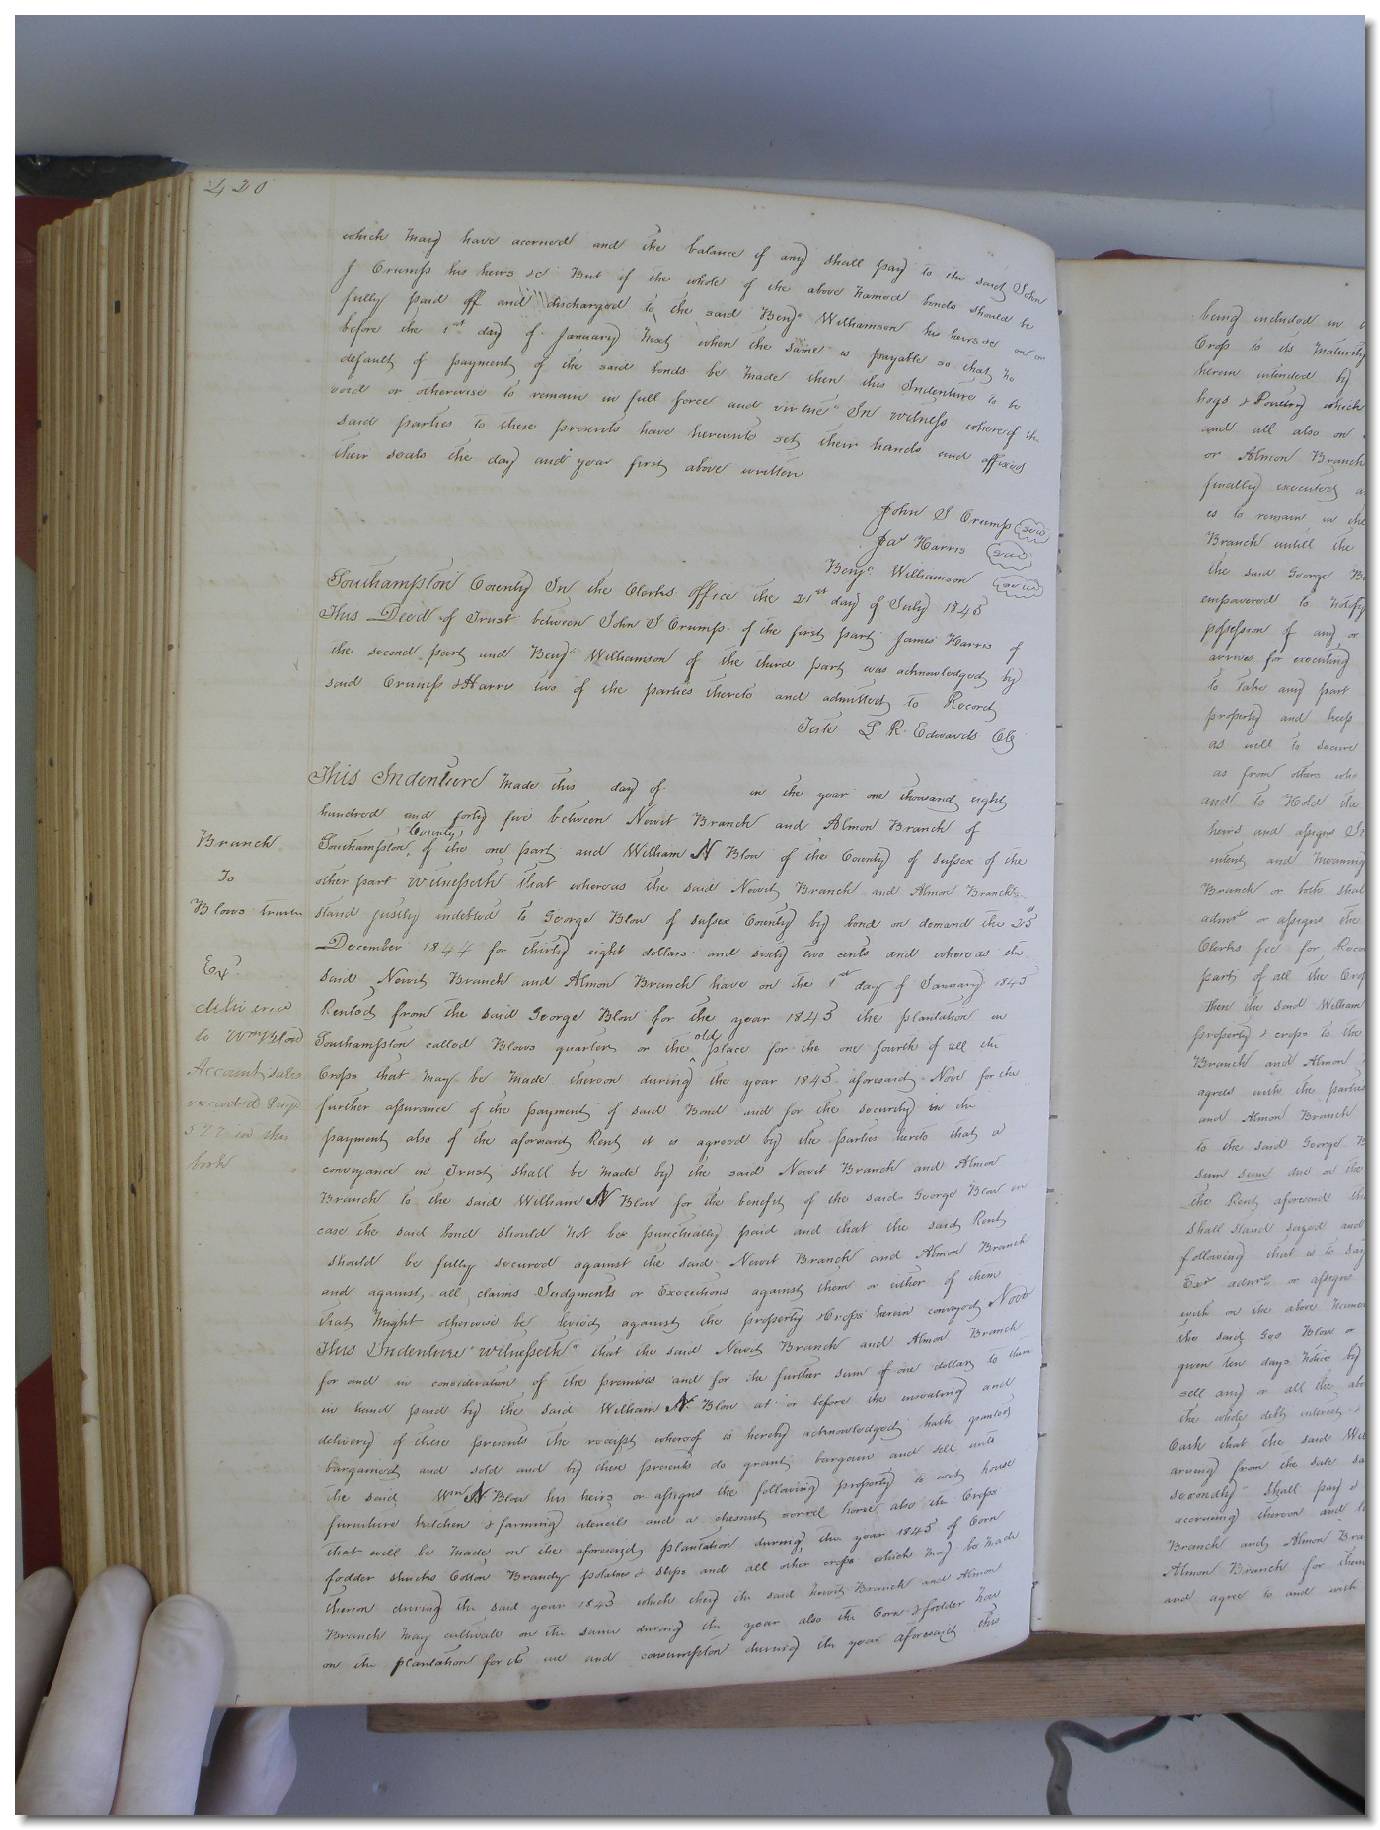 420
which may have accrued and the balance if any shall pay to the said John
J Crumpt his heirs &c But if the whole of the above named bonds should be
fully paid off and discharged to the said Benja Williamson his heirs &c on or
before the 1st day of January Next when the same is payable so that no
default of payment of the said bonds be made then this Indenture to be
void or otherwise to remain in full force and virtue In witness whereof the
said parties to these presents have hereunto set their hands and affixed
their seals the day and year first above written
John S Crumpt seal
Jas Harris seal
Benja Williamson seal
Southampton County In the Clerks office the 21st day of July 1845
This Deed of Trust between John S Crumpt of the first part James Harris of
the second part and Benja Williamson of the third part was acknowledged by
said Crumpt & Harris two of the parties thereto and admitted to Record
Teste L R Edwards Clk
This Indenture made this day of in the year one thousand eight
hundred and forty five between Newit Branch and Almon Branch of
Southampton County of the one part and William N Blow of the County of Sussex of the
other part witnesseth that whereas the said Newit Branch and Almon Branch
stand justly indebted to George Blow of Sussex County by bond on demand the 25th
December 1844 for thirty eight dollars and sixty two cents and whereas the
said Newit Branch and Almon Branch have on the 1st day of January 1845
Rented from the said George Blow for the year 1845 the plantation in
Southampton called Blows quarters or the old place for the one fourth of all the
Crops that may be made thereon during the year 1845 aforesaid Now for the
further assurance of the payment of said Bond and for the security in the
payment also of the aforesaid Rent it is agreed by the parties hereto that a
conveyance in Trust shall be made by the said Newit Branch and Almon
Branch to the said William N Blow for the benefit of the said George Blow in
case the said bond should not be punctually paid and that the said Rent
should be fully secured against the said Newit Branch and Almon Branch
and against all claims Judgments or Executions against them or either of them
that might otherwise be levied against the property & Crops herein conveyed Now
This Indenture witnesseth that the said Newit Branch and Almon Branch
for and in consideration of the premises and for the further sum of one dollar to them
in hand paid by the said William N Blow at or before the ensealing and
delivery of these presents the receipt whereof is hereby acknowledged hath granted
bargained and sold and by these presents do grant bargain and sell unto
the said Wm N Blow his heirs or assigns the following property to wit house
furniture kitchen & farming utensils and a chesnut sorrel horse also the Crops
that will be made on the aforesaid plantation during the year 1845 of Corn
fodder shucks Cotton Brandy potatoes & slips and all other crops which may be made
thereon during the said year 1845 which they the said Newit Branch and Almon
Branch may cultivate on the same during the year also the Corn & fodder now
on the plantation for its use and consumption during the year aforesaid this
Branch
To
Blows trustee
Exd
delivered
to Wm Blow
Account sales
recorded page
577 in this
book
being included in
Crop to its maturity
herein intended by
hogs & Poultry which
and all also on
or Almon Branch
finally executed
is to remain in the
Branch untill the
the said George
empowered to notify
possession of any or
arrives for executing
to take any part
property and keep
as well to secure
as from others who
and to Hold the
heirs and assigns
intent and meaning
Branch or both shall
admr or assigns the
Clerks fee for
part of all the
then the said William
property & crops to the
Branch and Almon
agrees with the parties
and Almon Branch
to the said George
sum sum due on the
the Rent aforesaid
shall stand seized and
following that is to say
Exr admr or assigns
with on the above
the said Geo Blow or
given ten days notice by
sell any or all the
the whole debt interest
Cash that the said
arising from the sale
secondly shall pay
accruing thereon and
Branch and Almon
Almon Branch for them
and agree to and with